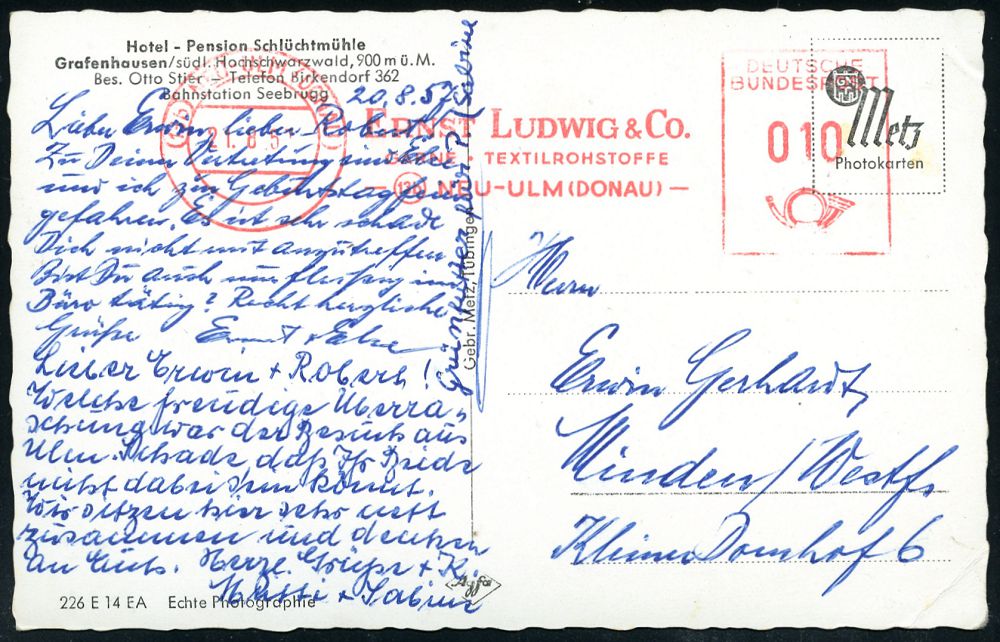 Hotel - Pension Schlüchtmühle
Grafenhausen/südl. Hochschwarzwald, 900 m ü. M.
Bes. Otto Stier — Telefon Birkendorf 362
Bahnstation Seebrugg
20.8.57
Lieber Erwin, lieber Robert!
Zu Deiner Vertretung sind Else
und ich zur Geburtstagsfeier
gefahren. Es ist sehr schade
Dich nicht mit anzutreffen.
Bist Du auch nur fleissig im
Büro tätig? Recht herzliche
Grüße Ernst + Else
Lieber Erwin + Robert!
Welche freudige Überra-
schung war der Besuch aus
Ulm. Schade daß Ihr Beide
nicht dabei sein könnt.
Wir sitzen hier sehr nett
zusammen und denken
an Euch. Herzl. Grüße + K.
+ Sabine
226 E 14 EA Echte Photographie
Gebr. Metz, Tübingen
Agfa
21. 8. 57
ERNST LUDWIG & CO.
GARNE · TEXTILROHSTOFFE
— (13b) NEU-ULM (DONAU) —
DEUTSCHE
BUNDESPOST
010
Metz
Photokarten
Herrn
Erwin Gerhardt,
Minden/Westf.
Kleiner Domhof 6